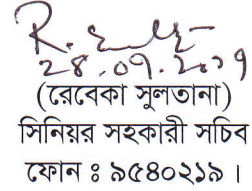 28.07.2019
(রেবেকা সুলতানা)
সিনিয়র সহকারী সচিব
ফোন ঃ ৯৫৪০২১৯ ।